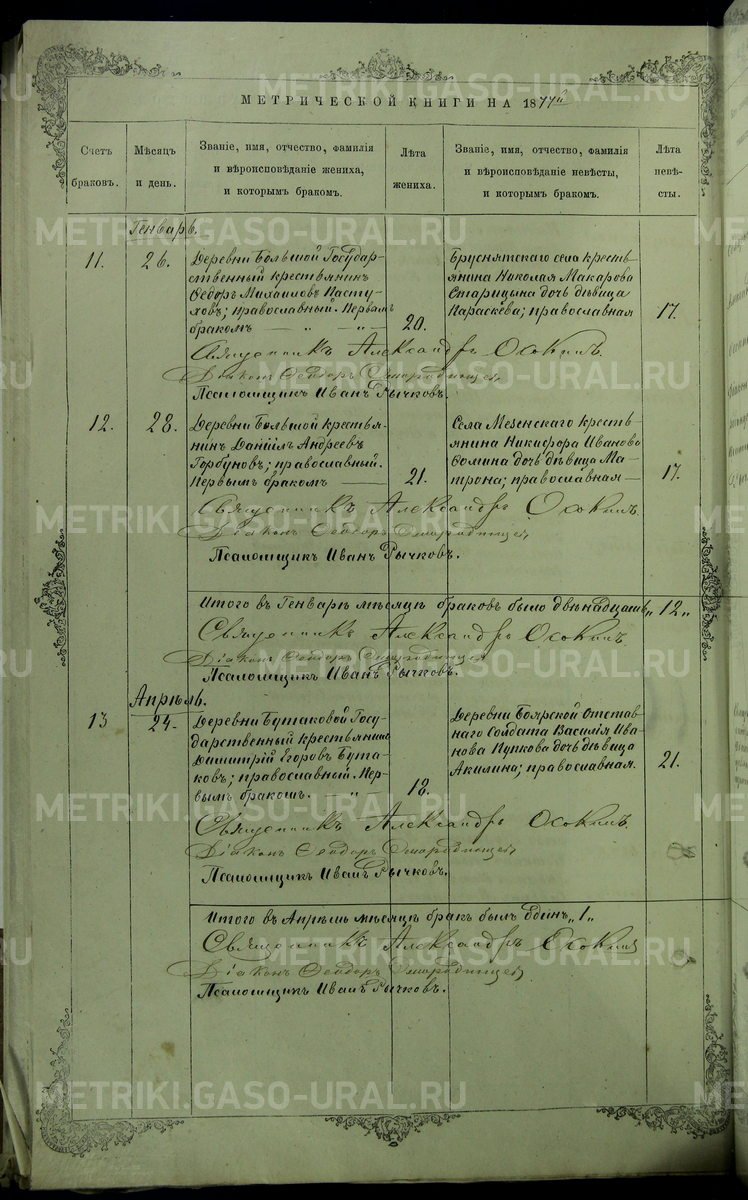 МЕТРИЧЕСКОЙ КНИГИ НА 1877й
Счетъ
браковъ.
Мѣсяцъ
и день.
Званіе, имя, отчество, фамилія
и вѣроисповѣданіе жениха,
и которымъ бракомъ.
Лѣта
жениха.
Званіе, имя, отчество, фамилія
и вѣроисповѣданіе невѣсты,
и которымъ бракомъ.
Лѣта
невѣ-
сты.
Генварь.
11.
26.
Деревни Большой Государ-
ственный крестьянинъ
Ѳедоръ Михаиловъ Пасту-
ховъ; православный. Первымъ
бракомъ — „ — „ —
20.
Бруснятскаго села кресть-
янина Николая Макарова
Старицына дочь дѣвица
Параскева; православная
17.
Священникъ Александръ Осокинъ.
Діаконъ Ѳеодоръ Смородинцевъ
Псаломщикъ Иванъ Рычковъ.
12.
28.
Деревни Большой крестья-
нинъ Даніилъ Андреевъ
Горбуновъ; православный.
Первымъ бракомъ —
21.
Села Мезенскаго кресть-
янина Никифора Иванова
Ѳомина дочь дѣвица Ма-
трона; православная —
17.
Священникъ Александръ Осокинъ.
Діаконъ Ѳеодоръ Смородинцевъ
Псаломщикъ Иванъ Рычковъ.
Итого въ Генварѣ мѣсяцѣ браковъ было двѣнадцать „12„
Священникъ Александръ Осокинъ.
Діаконъ Ѳеодоръ Смородинцевъ
Псаломщикъ Иванъ Рычковъ.
Апрѣль.
13
24.
Деревни Бутаковой Госу-
дарственный крестьянинъ
Димитрій Егоровъ Бута-
ковъ; православный. Пер-
вымъ бракомъ. — „ —
18.
Деревни Боярской Отстав-
наго Солдата Василія Ива-
нова Пупкова дочь дѣвица
Акилина; православная.
21.
Священникъ Александръ Осокинъ.
Діаконъ Ѳеодоръ Смородинцевъ
Псаломщикъ Иванъ Рычковъ.
Итого въ Апрѣлѣ мѣсяцѣ бракъ былъ одинъ „1„
Священникъ Александръ Осокинъ
Діаконъ Ѳеодоръ Смородинцевъ
Псаломщикъ Иванъ Рычковъ.
METRIKI.GASO-URAL.RU